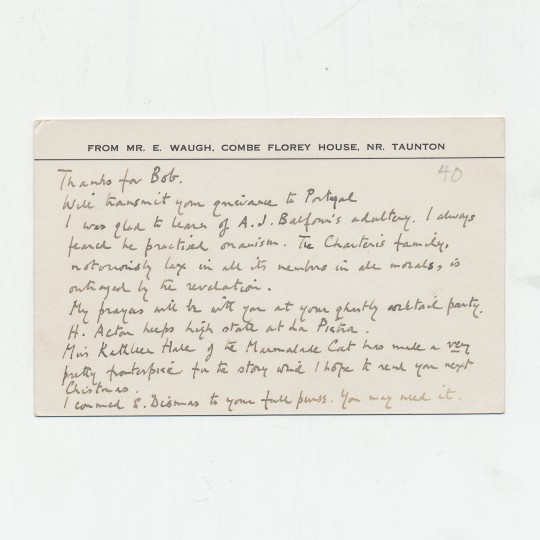 FROM MR. E. WAUGH, COMBE FLOREY HOUSE, NR. TAUNTON
40
Thanks for Bob.
Will transmit your grievance to Portugal
I was glad to learn of A. J. Balfour's adultery. I always
feared he practised onanism. The Charteris family,
notoriously lax in all its members in all morals, is
outraged by the revelation.
My prayers will be with you at your ghastly cocktail party.
H. Acton keeps high state at La Pietra.
Miss Kathleen Hale of the Marmalade Cat has made a very
pretty frontispiece for the story which I hope to send you next
Christmas.
I commend S. Dismas to your full . You may need it.